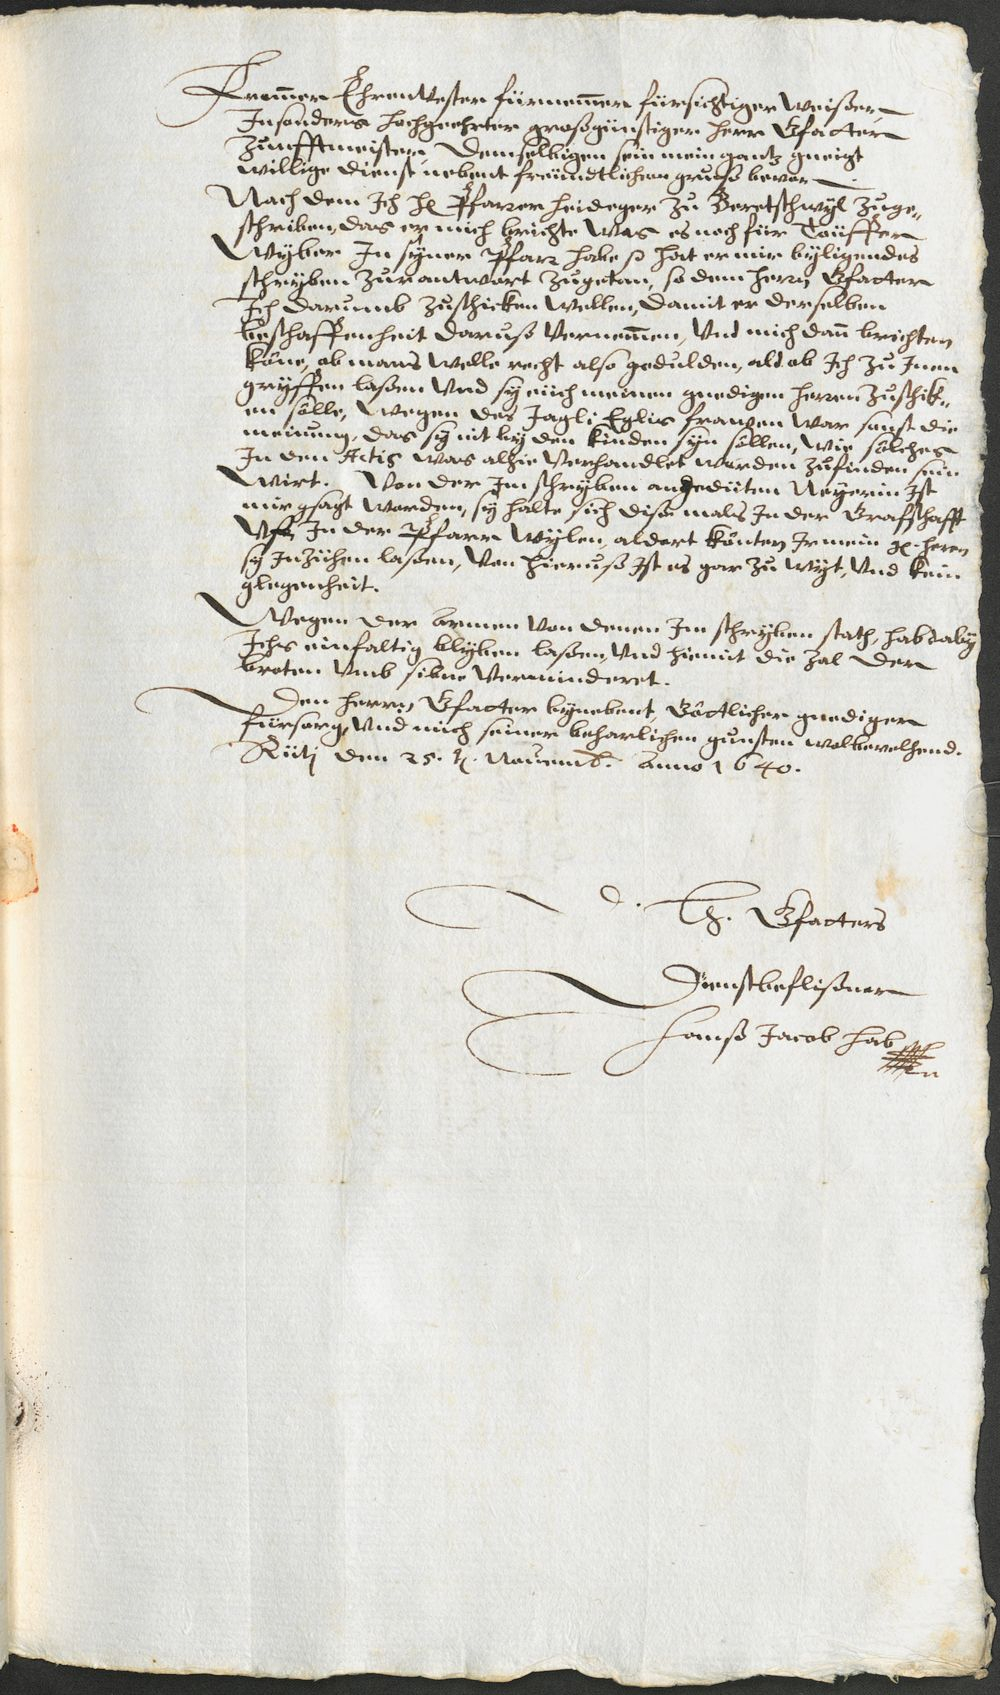 Frommer Ehrenvester fürnemmer fürsichtiger weißer,
Insonders hochgeehrter großgünstiger Herr Gfatter
Zunfftmeister, demselbigen sein mein gantz gneigt
willige dienst nebent freündtlichem gruß bevor.
Nach dem Ich H. Pfarrer Heideger zu Beretschwyl zuge„
schriben, das er mich brichte was es noch für Töüffer
Wyber In syner Pfarr habe, so hat er mir byligendes
schryben zur antwort zugetan, so dem Herrn Gfatter
Ich darumb zuschicken wellen, damit er derselben
beschaffenheit daruß vernemmen, Und mich dann brichten
köne, ob mans welle recht also gedulden, ald ob Ich zu Inen
gryffen laßen Und sy eüch meinen gnedigen Herren zuschik„
en sölle, wegen des Jagli Eglis frauwen war sunst die
meinung, das sy nit by den kinden syn söllen, wie solches
In den Actis was alhie verhandlet worden zufinden sein
wirt. Von der Im schryben angedüten Neyerin Ist
mir gsagt worden, sy halte sich diß mals In der Grafschafft
Uff In der Pfarr Wylen, aldort könten Ir mein gn. Herren
sy Inzühen laßen, Von hieruß Ist es gar zu wyt, Und kein
glegenheit.
Wegen der armen von denen Im schryben stath, hab daby
Ichs einfaltig blyben laßen, Und hiemit die zal der
broten Umb sibne verminderet.
Den Herrn Gfatter bynebent, Göttlicher gnediger
fürsorg, Und mich seiner beharlichen gunsten wolbevelhend.
Rüti den 25. Novemb. anno 1640.
D. H. Gfatters
Dienstbeflißner
Hanß Jacob Hab